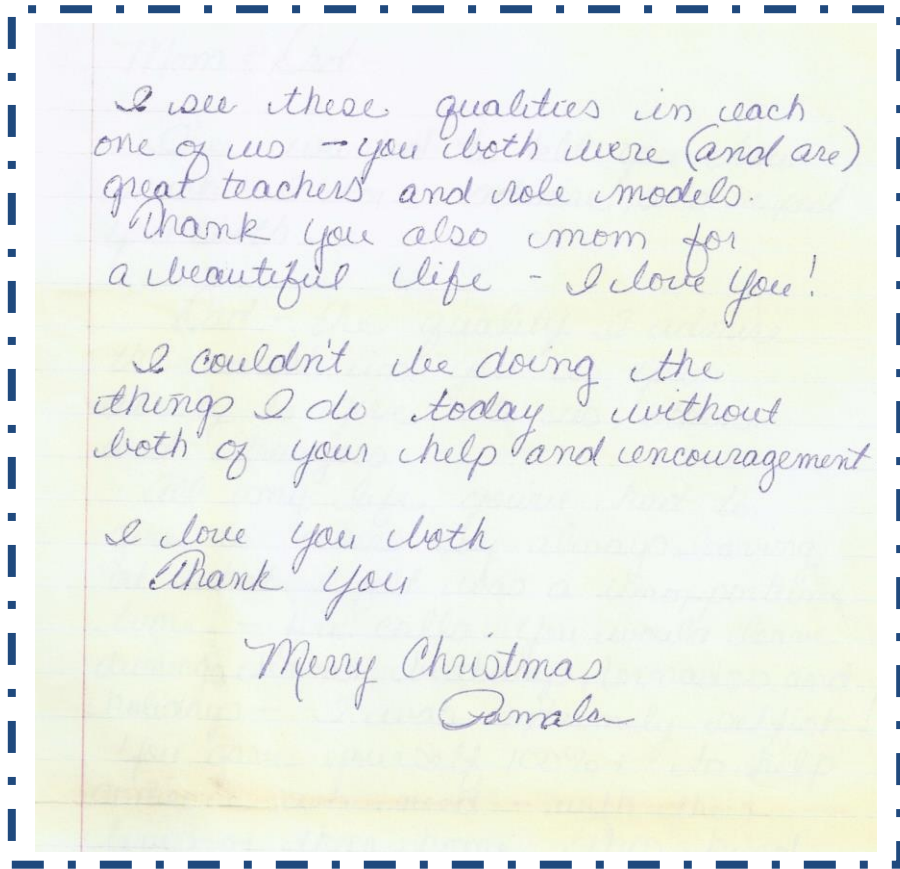 I see these qualities in each
one of us - you both were (and are)
great teachers and role models.
Thank you also mom for
a beautiful life - I love you!
I couldn't be doing the
things I do today without
both of your help and encouragement
I love you both
Thank you
Merry Christmas
Pamala